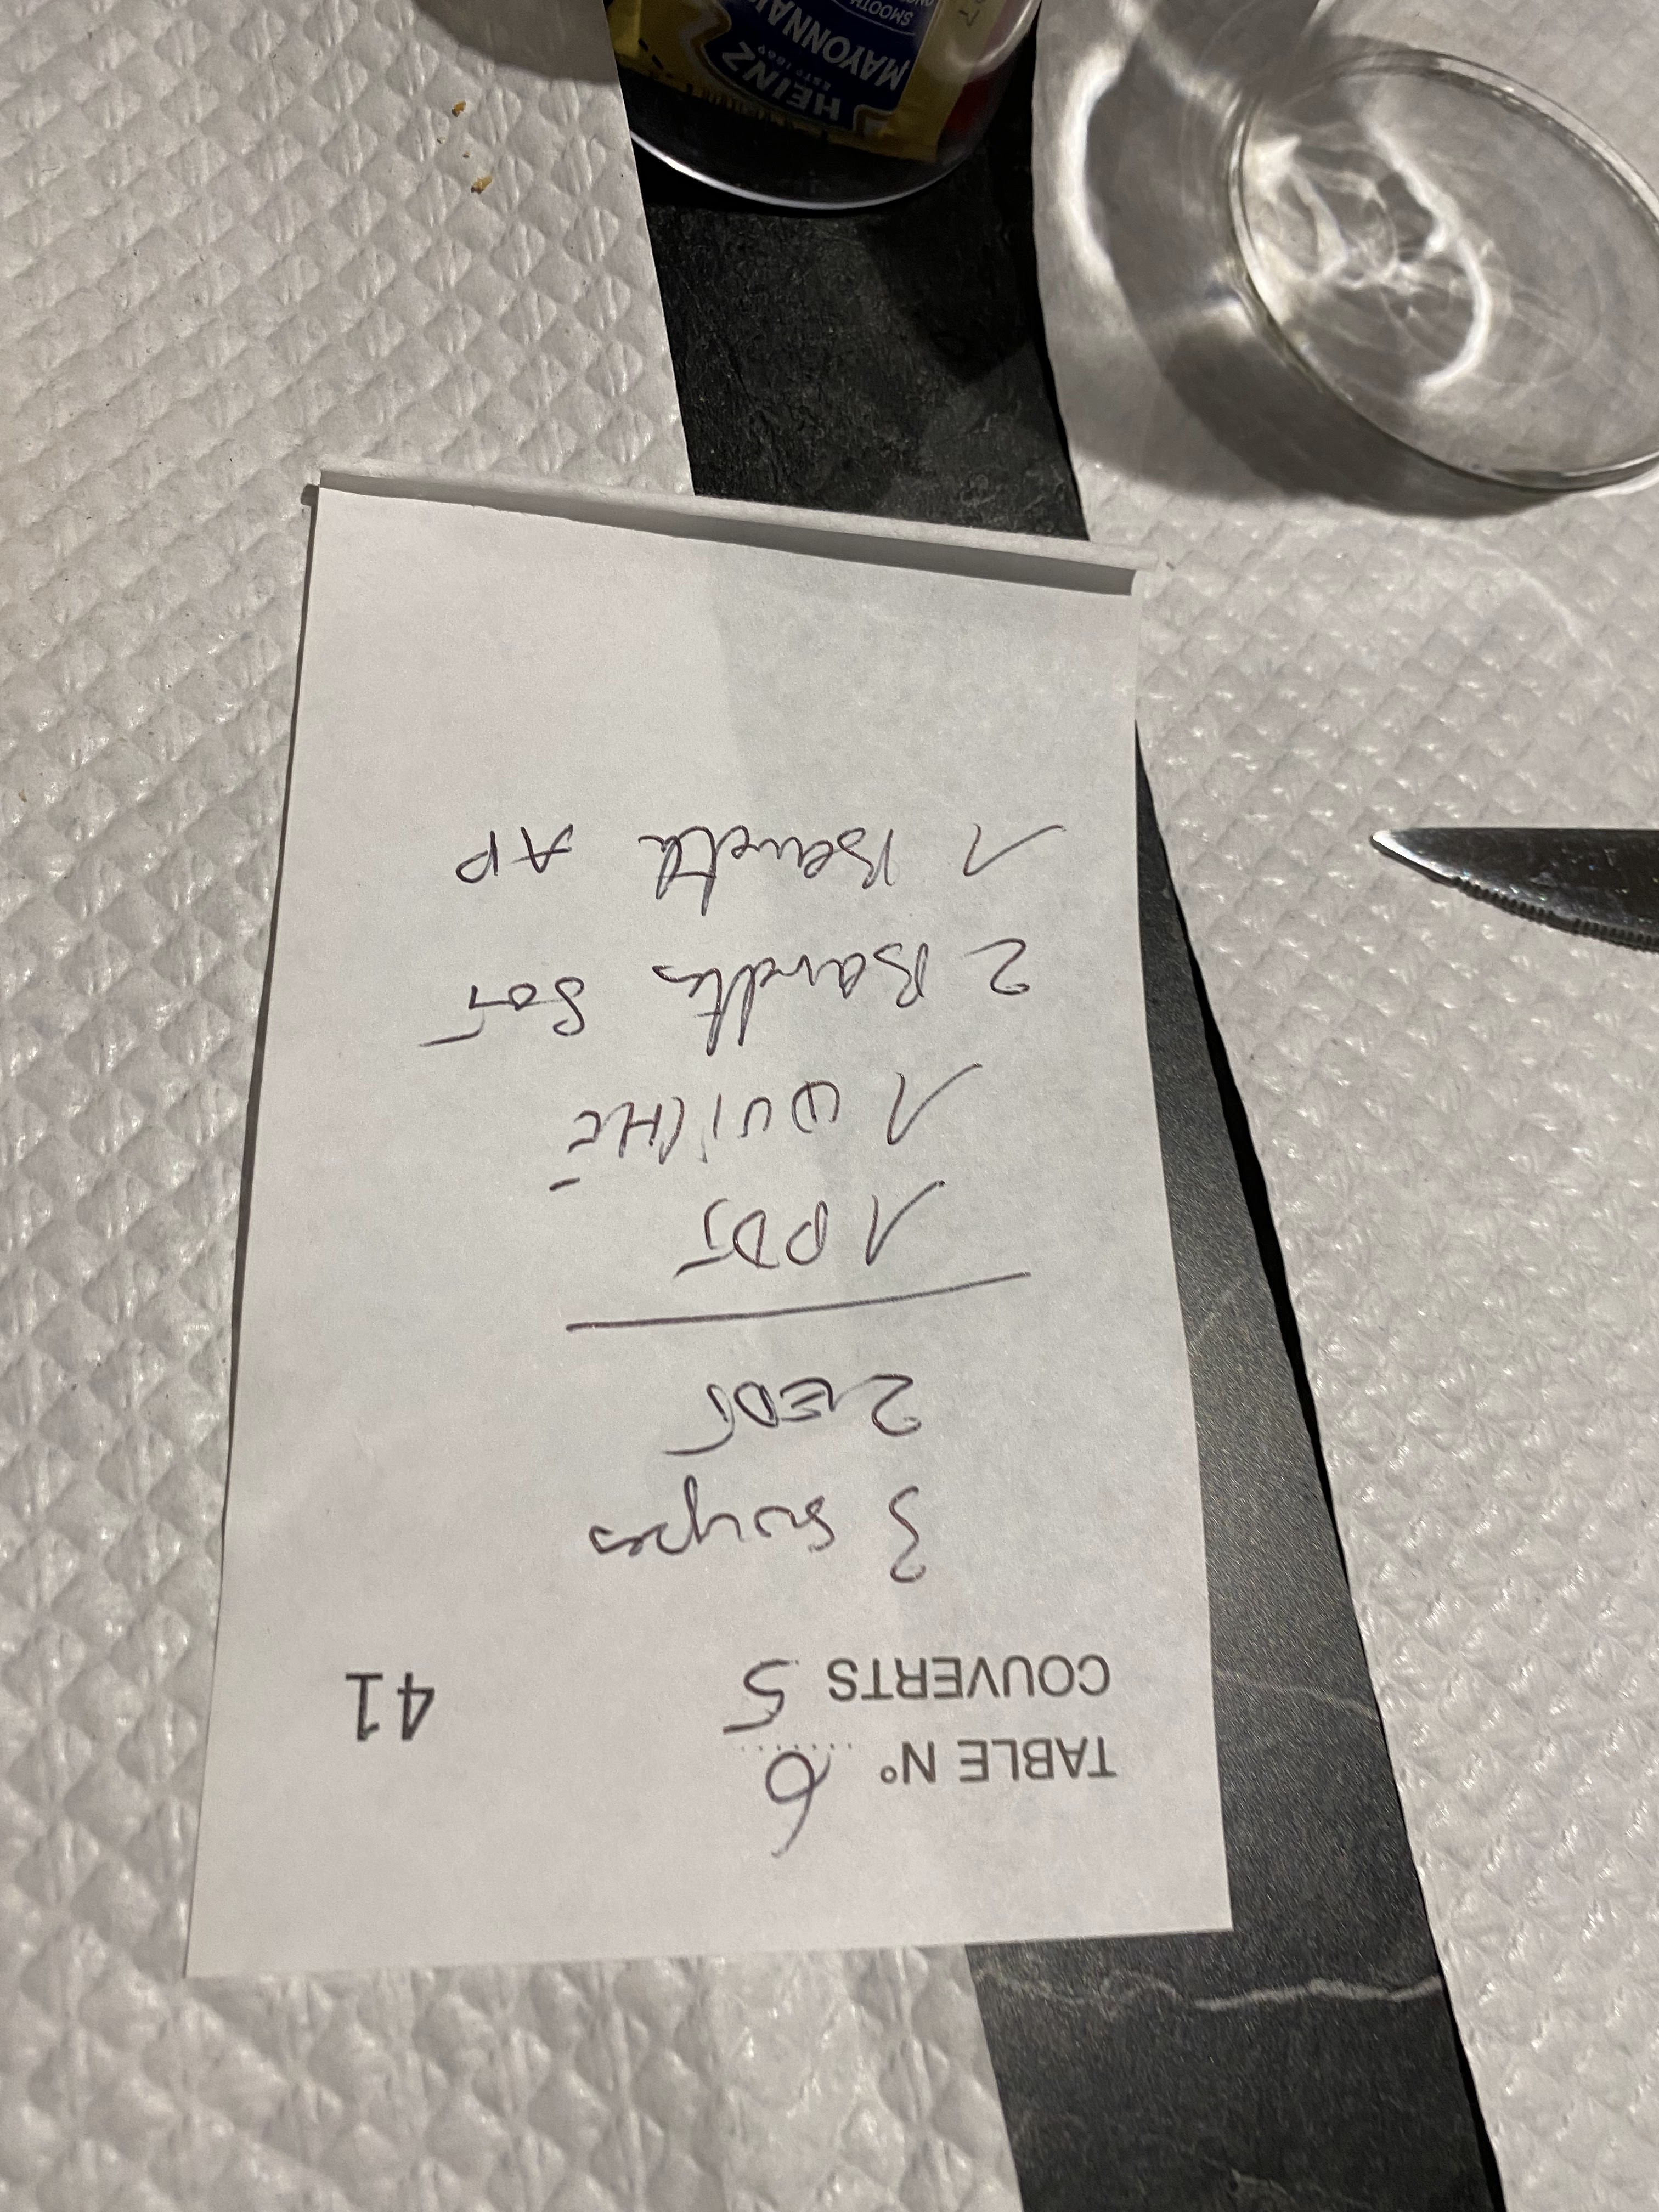 TABLE N° 6
COUVERTS 5
41
3 soupes
2 EDJ
1 PDJ
1 QUICHE
2 Bavettes SOJ
1 Bavette AP
HEINZ
ESTD 1869
MAYONNAI
SMOOTH